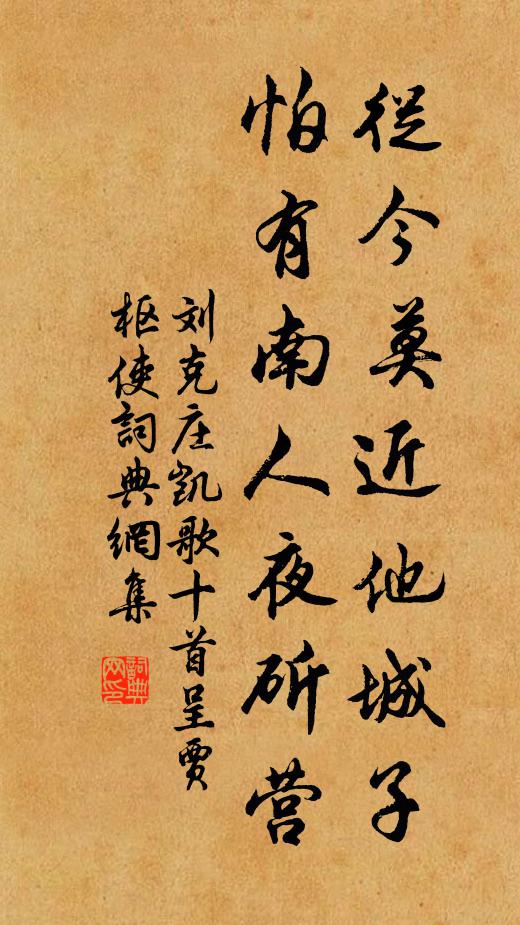 從今莫近他城子
怕有南人夜斫营
刘克庄凯歌十首呈贾
枢使詞典網集
詞典
网印